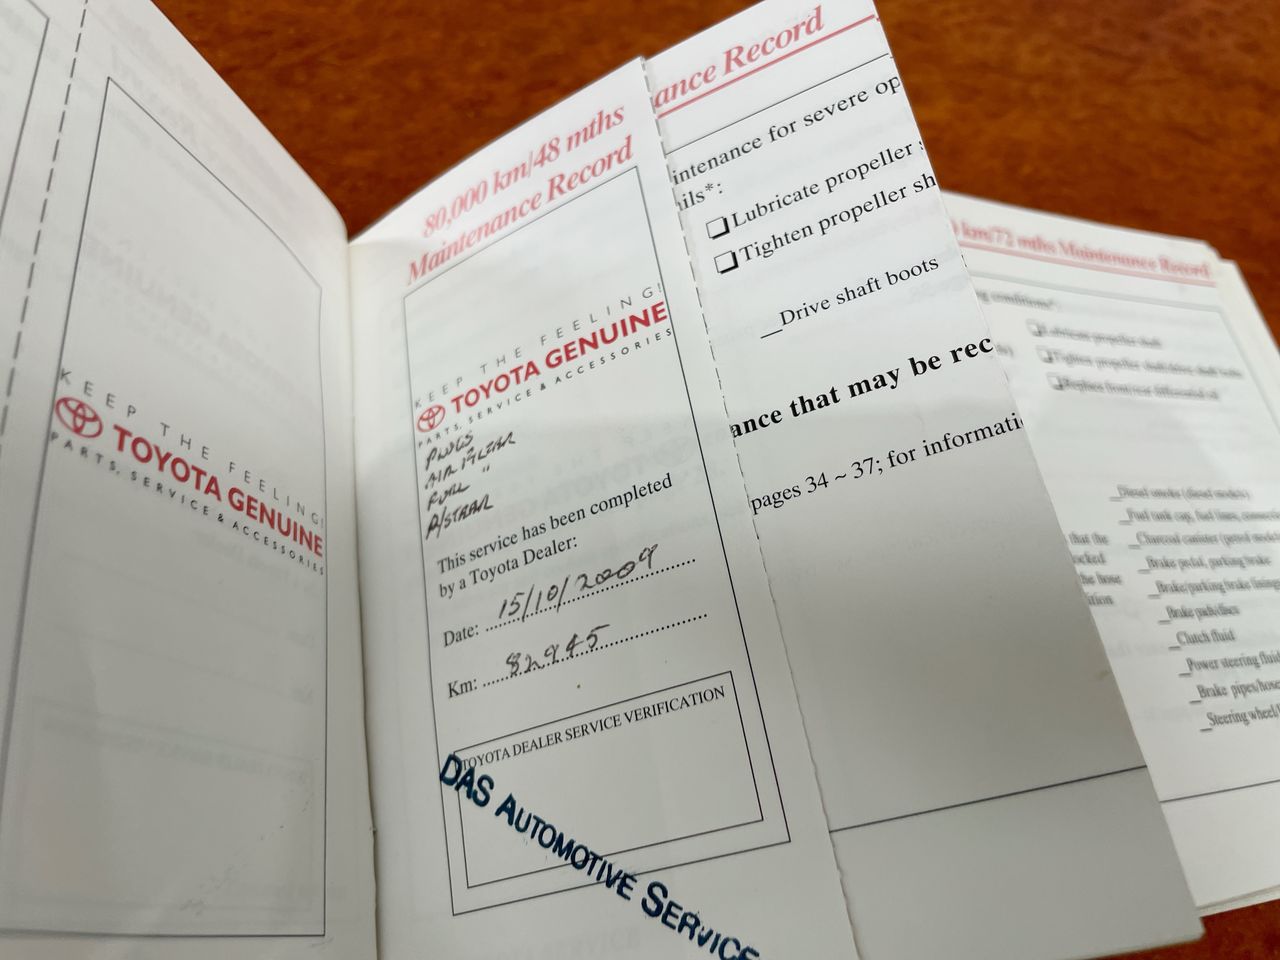 KEEP THE FEELING!
TOYOTA GENUINE
PARTS, SERVICE & ACCESSORIES
80,000 km/48 mths
Maintenance Record
KEEP THE FEELING!
TOYOTA GENUINE
PARTS, SERVICE & ACCESSORIES
PLUGS
AIR FILTER
FUEL "
This service has been completed
by a Toyota Dealer:
Date: 15/10/2009
Km: 82945
TOYOTA DEALER SERVICE VERIFICATION
DAS AUTOMOTIVE SERVICE
ance Record
intenance for severe op
ils*:
Lubricate propeller s
Tighten propeller sh
Drive shaft boots
ance that may be rec
pages 34 ~ 37; for informati
km/72 mths Maintenance Record
g conditions*:
Lubricate propeller shaft
Tighten propeller shaft/drive shaft bolts
Replace front/rear differential oil
Diesel smoke (diesel models)
Fuel tank cap, fuel lines, connectio
that the
Charcoal canister (petrol model
ocked
Brake pedal, parking brake
the hose
Brake/parking brake lining
ition
Brake pads/discs
Clutch fluid
Power steering fluid
Brake pipes/hose
Steering wheel/